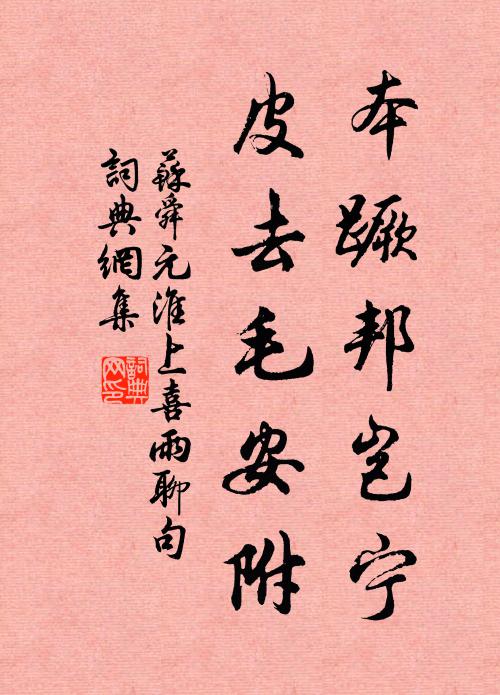 本蹶邦岂宁
皮去毛安附
蘇舜元淮上喜雨聊句
詞典網集
詞典网印